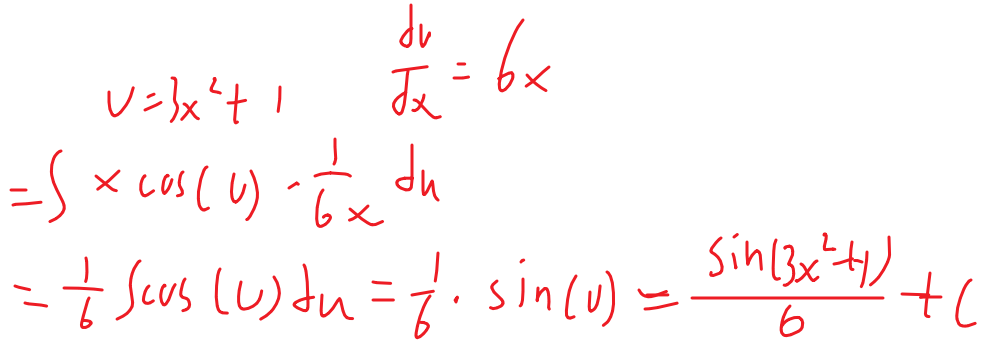 u = 3x² + 1    du/dx = 6x
= ∫ x cos(u) · 1/(6x) du
= 1/6 ∫ cos(u) du = 1/6 · sin(u) = sin(3x² + 1)/6 + C